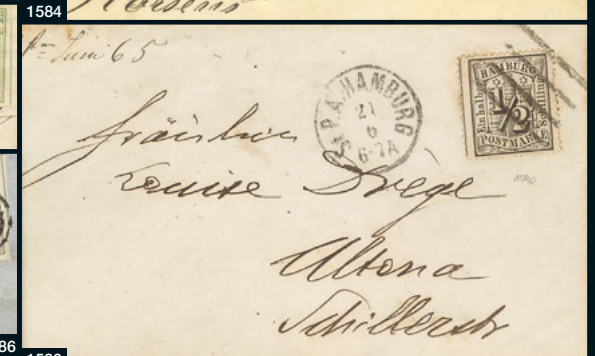 1584
Horsens
Juni 65
St.P.A.HAMBURG
21
6
6-7A
HAMBURG
Ein halb
1/2
Schilling
POSTMARKE
Fräulein
Louise Drège
Altona
Schillerstr
86